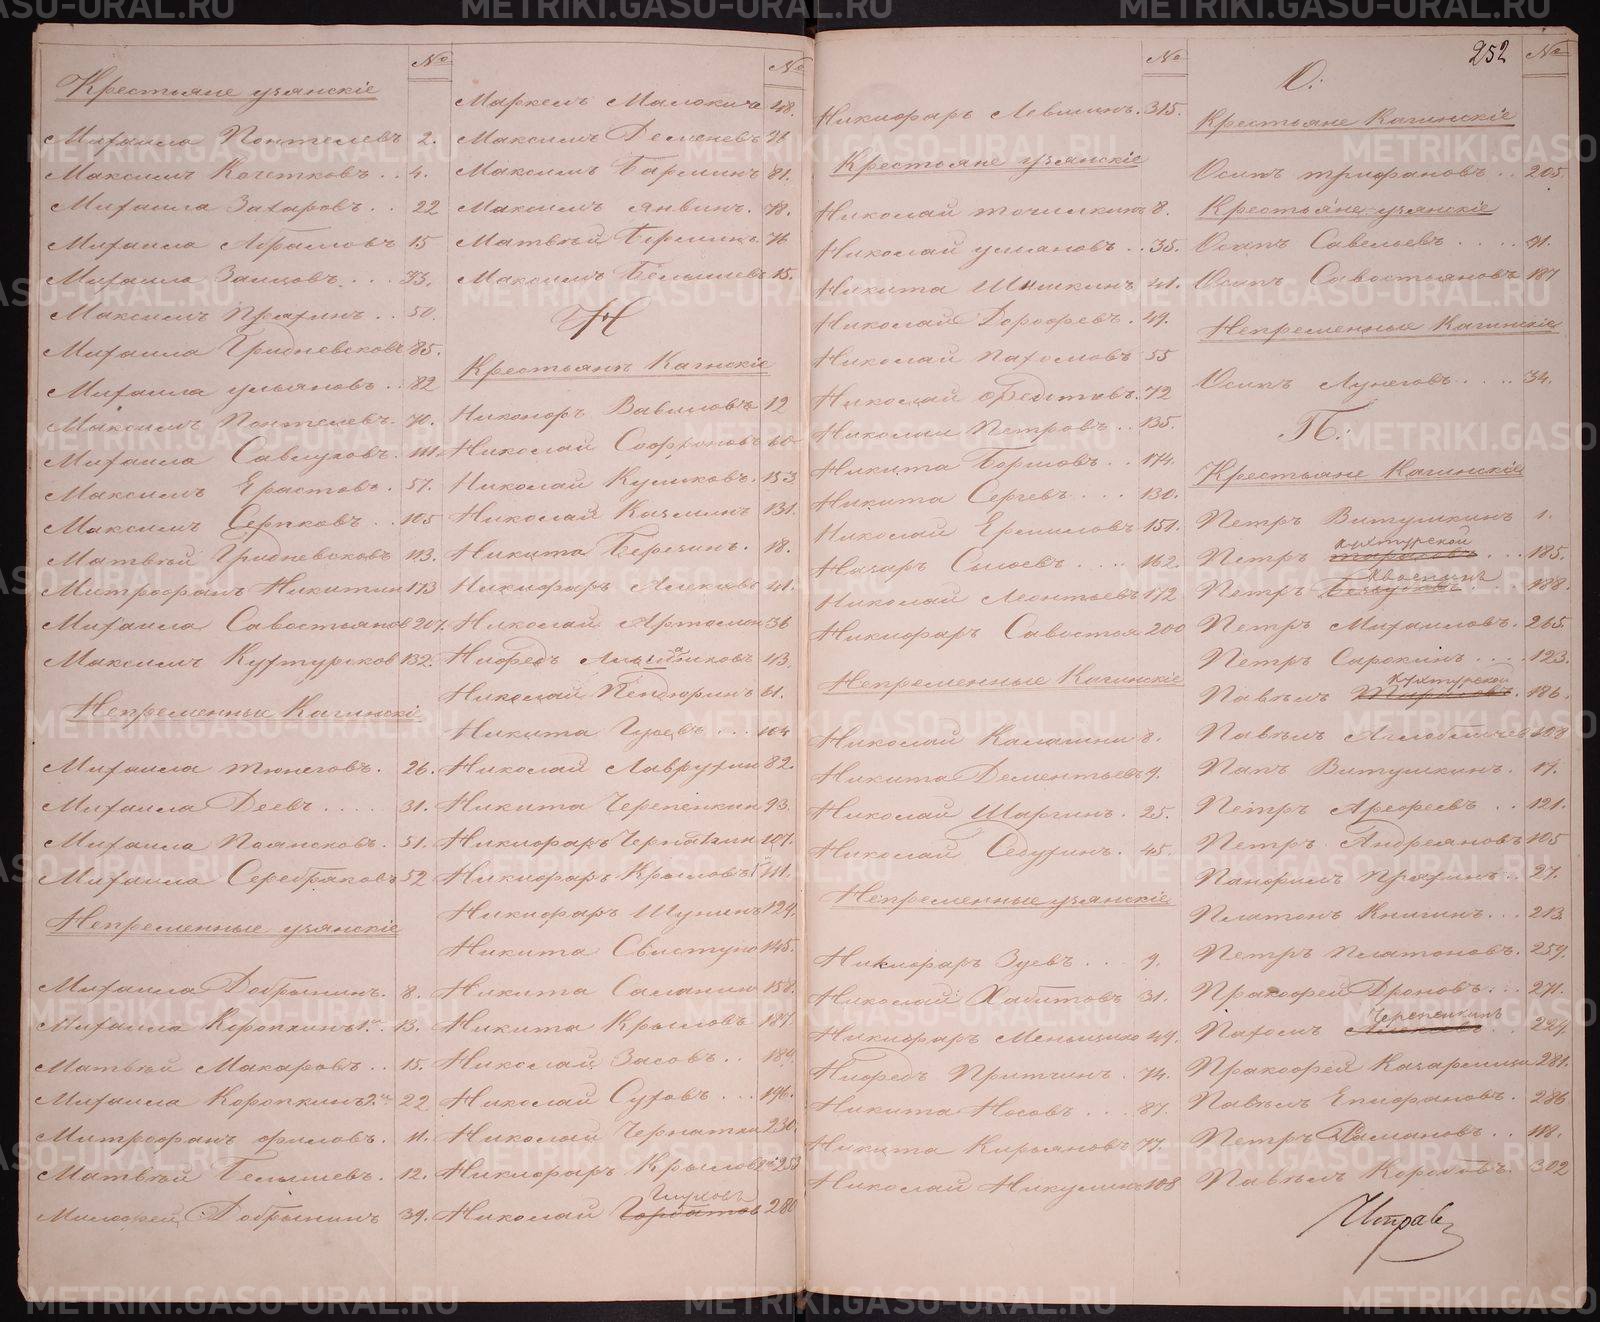 №
Крестьяне узянскіе
Михаила Пантелевъ 2.
Максимъ Кочетковъ . . 4.
Михаила Захаровъ . . 22
Михаила Абрамовъ 15
Михаила Заицовъ . . . 33.
Максимъ Пряхинъ . . 50.
Михаила Гридневсковъ 85.
Михаила ульяновъ . . 82
Максимъ Пантелевъ. 70.
Михаила Савлуховъ. 111.
Максимъ Ерастовъ . 57.
Максимъ Серпковъ . . 105
Матвѣй Гридневсковъ 113.
Митрофанъ Никитин 173
Михаила Савостьянов 207.
Максимъ Кухтурсков 132.
Непременные Кагинскіе
Михаила тюнеговъ. 26.
Михаила Деевъ . . . . 31.
Михаила Паянсковъ. 51.
Михаила Серебряковъ 52
Непременные узянскіе
Михаила Добрынинъ. 8.
Михаила Коропкинъ 1й. 13.
Матвѣй Макаровъ . . 15.
Михаила Коропкинъ 2й. 22
Митрофанъ филовъ. 11.
Матвѣй Белышевъ. 12.
Тимофей Добрынинъ 39.
№
Маркелъ 48.
Максимъ Деменевъ 21
Максимъ Барминъ 81.
Максимъ янвинъ. 78.
Матвѣй 76
Максимъ Белышевъ 15.
Н
Крестьянъ Кагнскіе
Никоноръ Вавиловъ 12
Николай Софроновъ 60
Николай Куликовъ. 153
Николай Казминъ 131.
Никита Березинъ. 18.
Никифаръ Алексѣев 41.
Николай Артамон 36
Нифедъ 43.
Николай Пендюринъ 61.
Никита Гусевъ . . . 104
Николай Лаврухин 82.
Никита Черепенкин 93.
Никифаръ Чернаткин 107.
Никифаръ Крыловъ 1й 111.
Никифаръ Шунинъ 124.
Никита Свистуно 145.
Никита Саланин 158.
Никита Крыловъ 187.
Николай Засовъ . . 189.
Николай Суховъ . . . 196.
Николай Чернатки 230.
Никифаръ Крылов 2й 253
Глуховъ
Николай Горбатов 280
№
Никифаръ Левшинъ. 315.
Крестьяне узянскіе
Николай точилкинъ 8.
Николай умановъ . . 35.
Никита Шишкинъ 41.
Николай Дорофевъ . 49.
Николай пахомовъ 55
Николай Федотовъ. 72
Николай Петровъ . . 135.
Никита Бормовъ . . 174.
Никита Сергевъ . . . 130.
Николай Ермиловъ 151.
Назаръ Сысоевъ . . . . 162.
Николай Леонтьевъ 172
Никифаръ Савостья 200
Непременные Кагинскіе
Николай Калашни 8.
Никита Дементьевъ 9.
Николай Шаргинъ . 25.
Николай Седухинъ . 45.
Непременные узянскіе
Никифаръ Зуевъ . . . 9.
Николай Хабитовъ 31.
Никифаръ Меньщико 49.
Нифедъ Притчинъ . 74.
Никита Носовъ . . . 87.
Никита Кирьяновъ 77.
Николай Никулинъ 108
252 №
О:
Крестьяне Кагинскіе
Осипъ трифановъ . . 205.
Крестьяне узянскіе
Осипъ Савельевъ . . . . 91.
Осипъ Савостьяновъ 187
Непременные Кагинскіе
Осипъ Лунеговъ . . . . 34.
П:
Крестьяне Кагинскіе
Петръ Витушкинъ 1.
кухтурской
Петръ . . . 185.
Явоскинъ
Петръ 188.
Петръ Михаиловъ. 265.
Петръ Сарокинъ . . . . 123.
кухтурской
Павѣлъ . 186.
Павѣлъ 108
Папъ Витушкинъ. 17.
Пётръ Арефеевъ . . 121.
Петръ Андреяновъ 105
Панфилъ Пряхинъ . . 27.
Платонъ Книгинъ . . . 213
Петръ Платоновъ. 259.
Пракофей Дроновъ . . . 271.
Черепенкинъ
Пахомъ . . 224.
Пракофей Качармин 281.
Павѣлъ Епифановъ . 286
Петръ Романовъ . . 118.
Павѣлъ Коробовъ. 302
METRIKI.GASO-URAL.RU